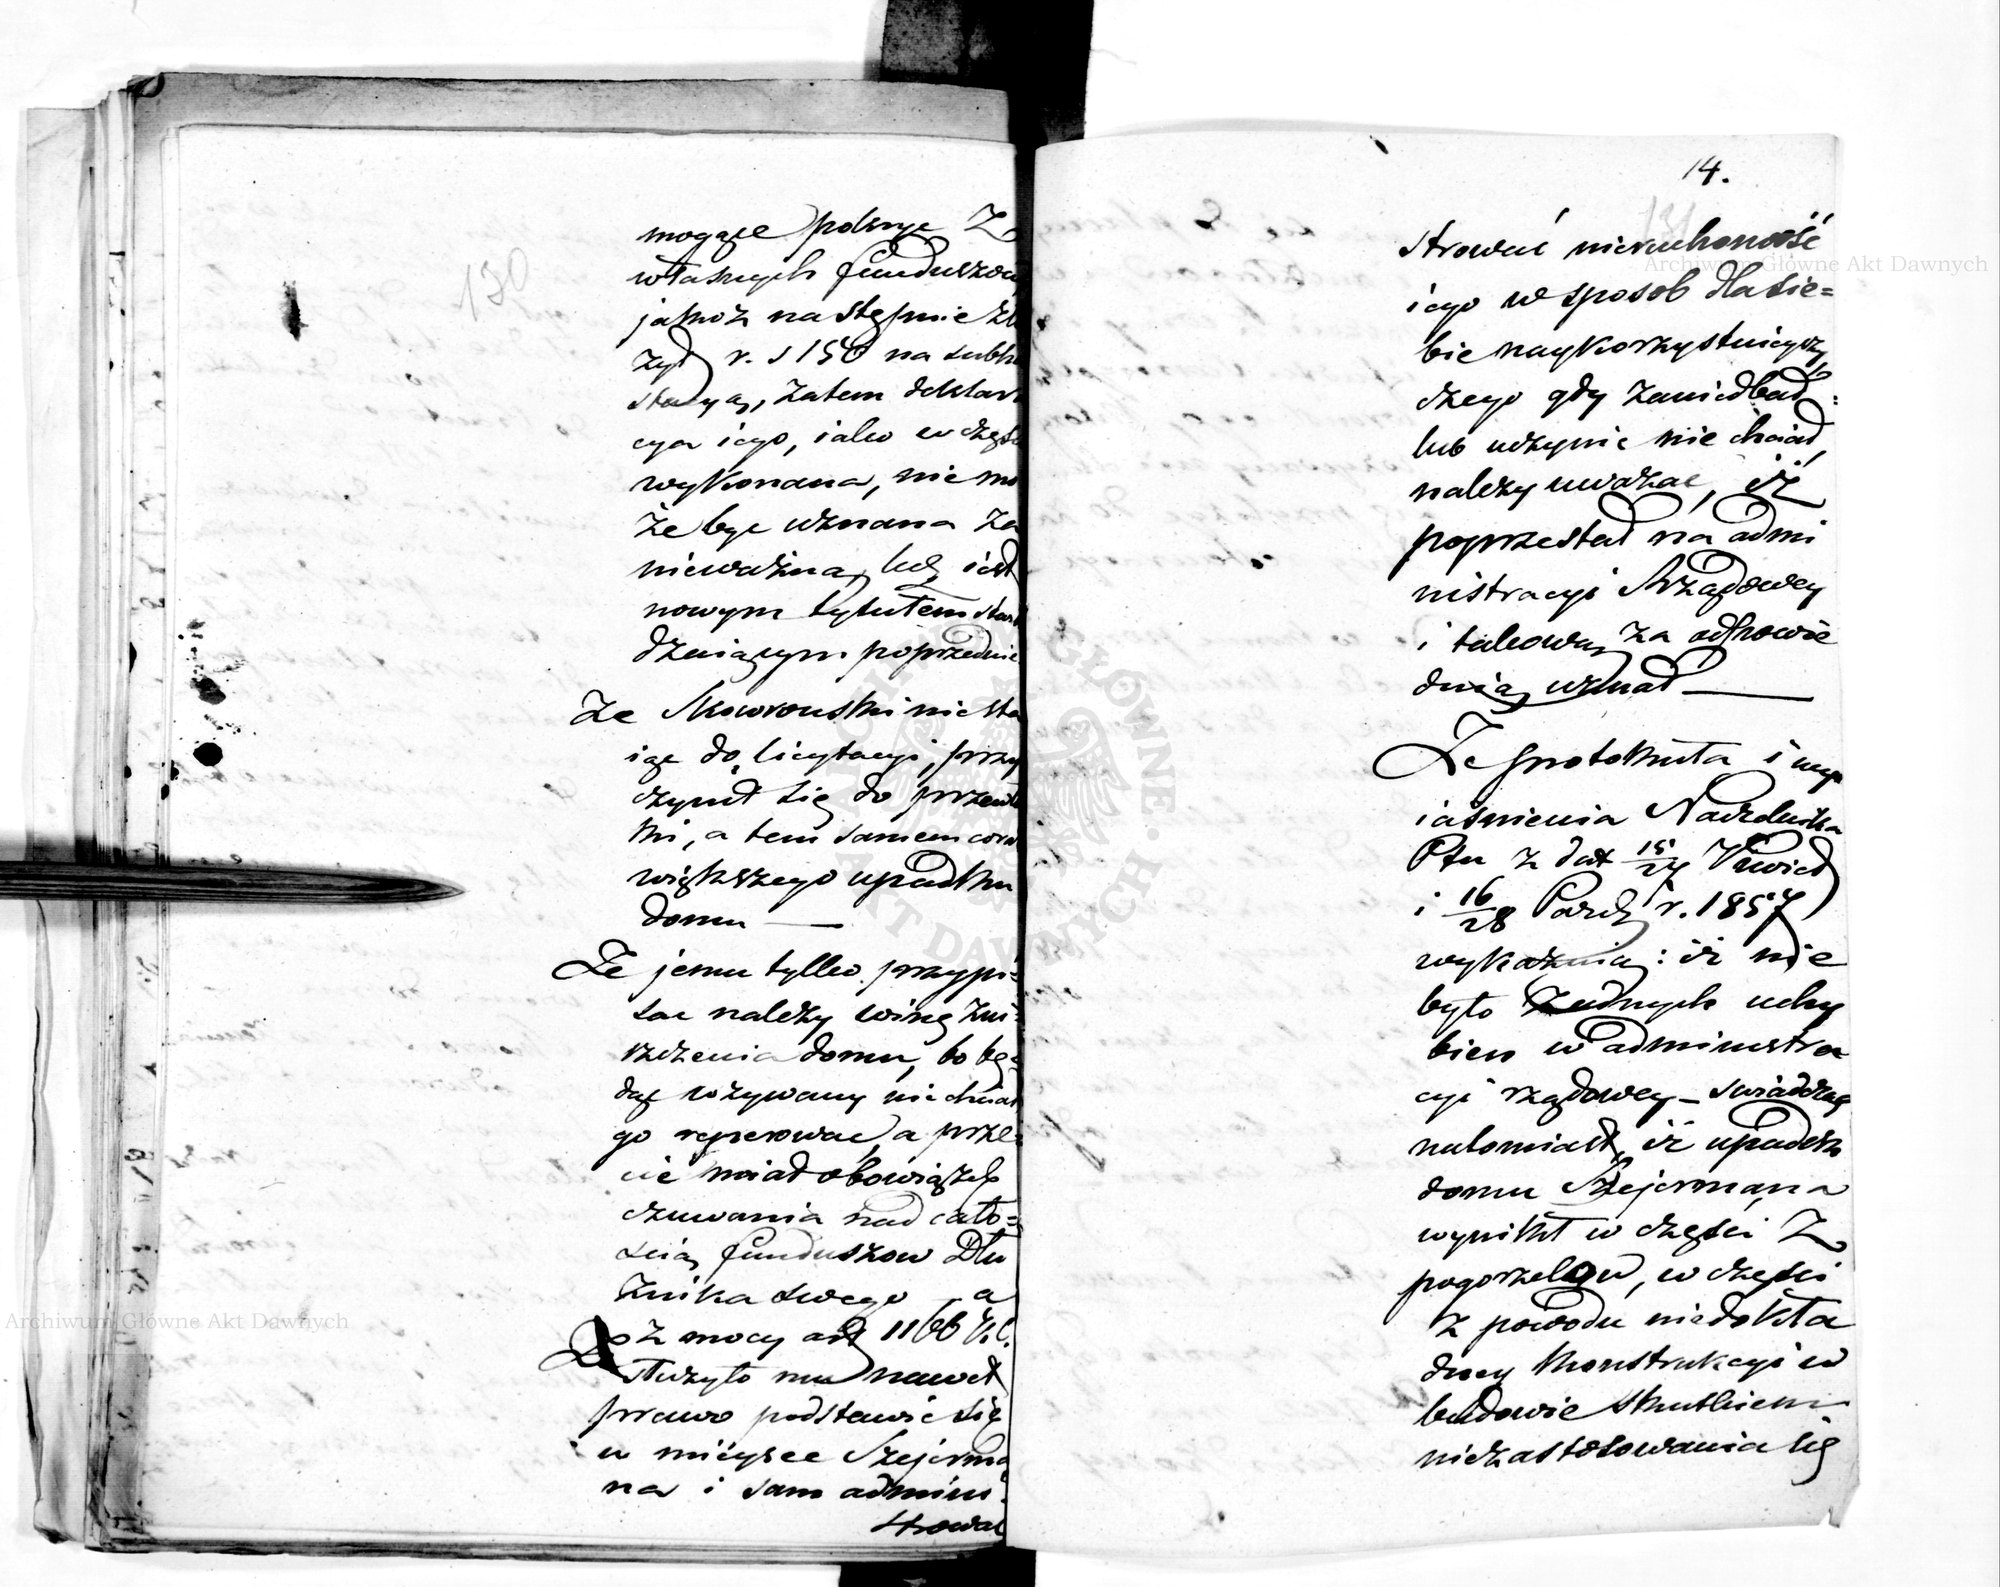 130
mogące pokryć z
własnych funduszów
jakoż następnie zło
żył r. s 150 na subha
stacyą, zatem deklara
cya iego, iako w części
wykonana, nie mo
że być uznana za
nieważną, lecz iest
nowym tytułem stwier
dzaiącym poprzednie
Że Skowroński nie sta
iąc do licytacyi, przy
czynił się do przewło
ki, a tem samem coraz
większego upadku
domu —
Że jemu tylko przypi=
sać należy winę zni=
szczenia domu, bo bę=
dąc wzywany nie chciał
go reperować, a prze=
cie miał obowiązek
czuwania nad cało=
ścią funduszów Dłu
żnika swego — a
że z mocy art 1166 K.C.
służyło mu nawet
prawo podstawić się
w mieysce Szejerma
na i sam admini=
strować
14.
131
strować nieruchomość
iego w sposób dla sie=
bie naykorzystnieyszy,
czego gdy zaniedbał
lub uczynić nie chciał,
należy uważać, iż
poprzestał na admi
nistracyi Rządowey
i takową za odpowie
dnią uznał —
Że protokuła i wy
iaśnienia Naczelnika
Ptu z dat 15/27 Kwiet
i 16/28 Paźdz r. 1857
wykazuią: iż nie
było żadnych uchy
bień w administra
cyi rządowey — świadczą
natomiast, iż upadek
domu Szejermana
wynikł w części z
pogorzelów, w części
z powodu niedokła
dney konstrukcyi w
budowie skutkiem
niezastosowania się
Archiwum Główne Akt Dawnych
Archiwum Główne Akt Dawnych
ARCHIWUM GŁÓWNE AKT DAWNYCH